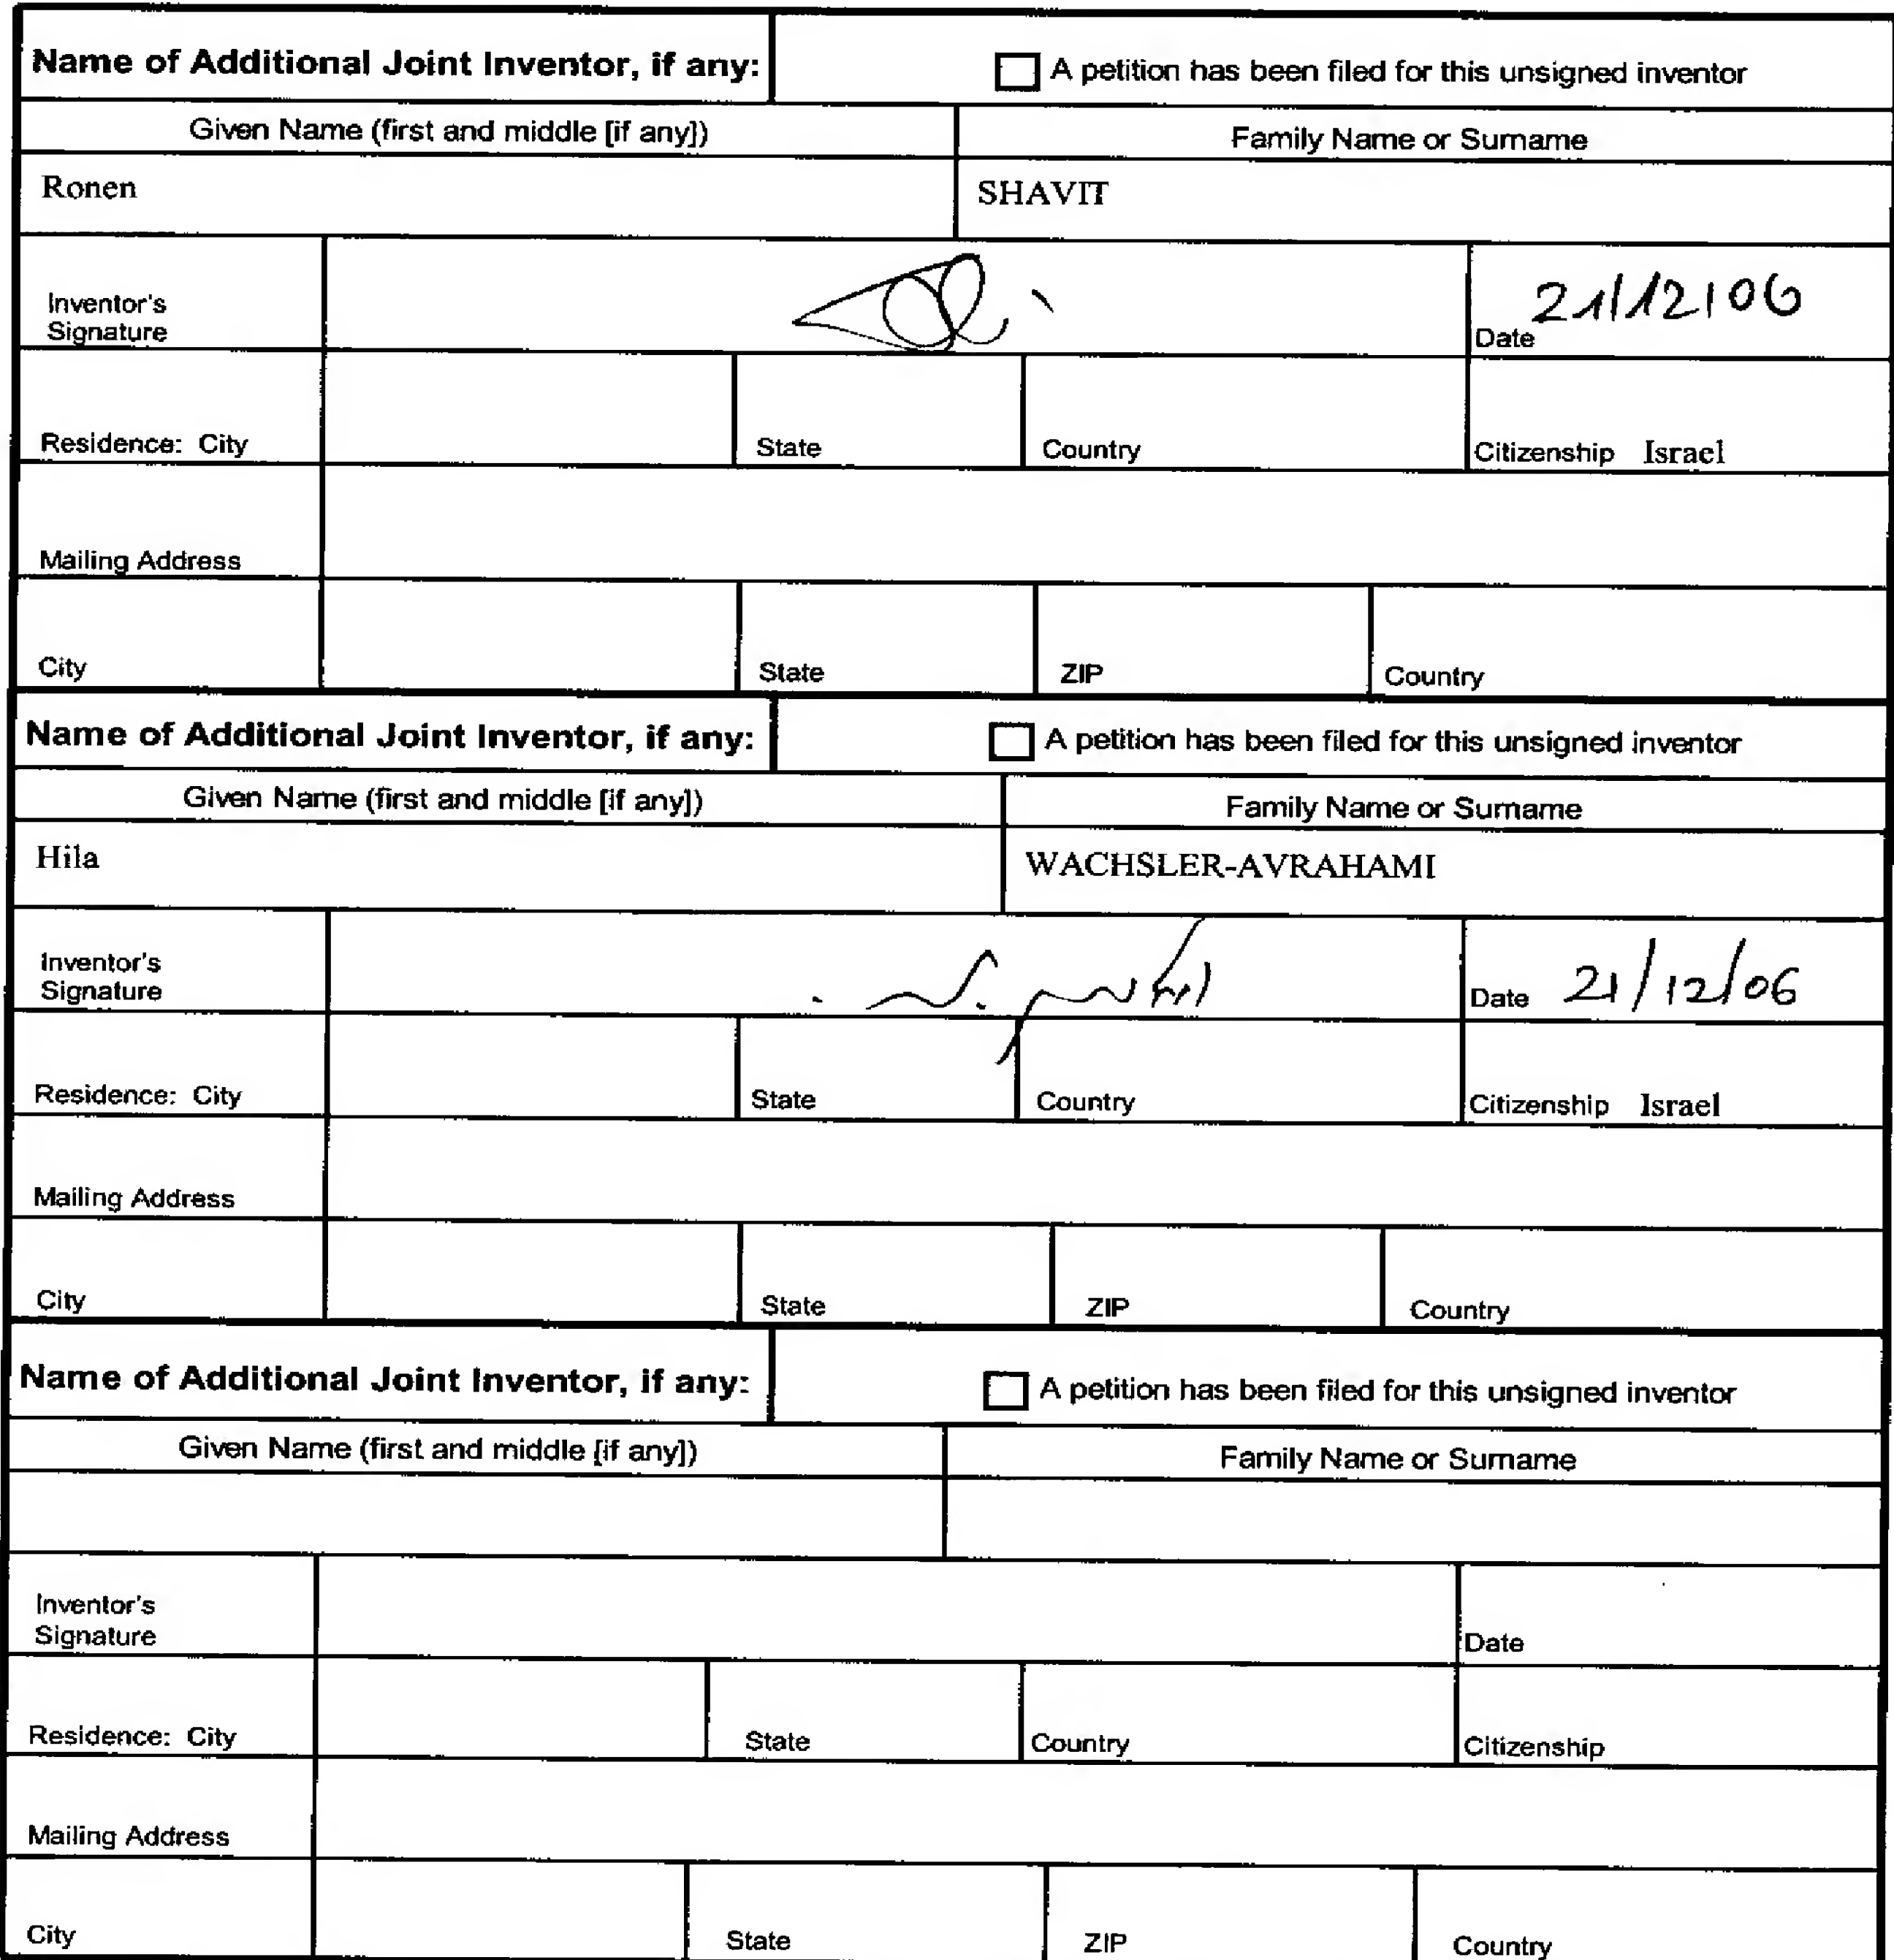 Name of Additional Joint Inventor, if any: A petition has been filed for this unsigned inventor
Given Name (first and middle [if any]) Family Name or Surname
Ronen SHAVIT
Inventor's
Signature Date 21/12/06
Residence: City State Country Citizenship Israel
Mailing Address
City State ZIP Country
Name of Additional Joint Inventor, if any: A petition has been filed for this unsigned inventor
Given Name (first and middle [if any]) Family Name or Surname
Hila WACHSLER-AVRAHAMI
Inventor's
Signature Date 21/12/06
Residence: City State Country Citizenship Israel
Mailing Address
City State ZIP Country
Name of Additional Joint Inventor, if any: A petition has been filed for this unsigned inventor
Given Name (first and middle [if any]) Family Name or Surname
Inventor's
Signature Date
Residence: City State Country Citizenship
Mailing Address
City State ZIP Country